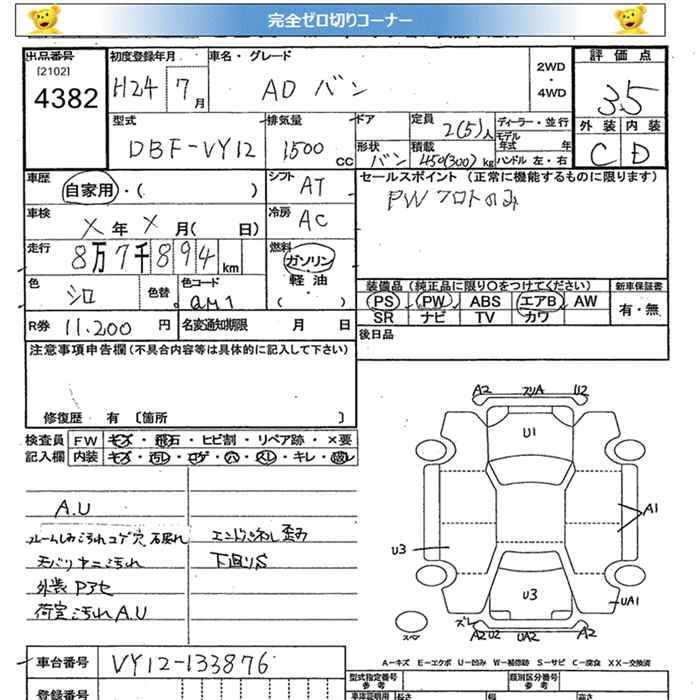 完全ゼロ切りコーナー
出品番号 初度登録年月 車名・グレード 評価点
[2102]
4382 H24 7月 ADバン 2WD・4WD 3.5
型式 排気量 ドア 定員 2(5)人 ディーラー・並行 外装 内装
DBF-VY12 1500cc 形状 バン 積載 450(300)kg モデル年式 年 ハンドル 左・右 C D
車歴 自家用・( ) シフト AT セールスポイント (正常に機能するものに限ります)
車検 ×年×月( 日) 冷房 AC PWフロトのみ
走行 8万7千894km 燃料 ガソリン
軽油
色 シロ 色替 色コード QM1 ( )
装備品 (純正品に限り○をつけてください) 新車保証書
PS PW ABS エアB AW 有・無
SR ナビ TV カワ
R券 11,200円 名変通知期限 月 日
後日品
注意事項申告欄(不具合内容等は具体的に記入して下さい)
修復歴 有 〔箇所 〕
検査員 FW キズ・飛石・ヒビ割・リペア跡・×要
記入欄 内装 キズ・汚レ・コゲ・穴・スレ・キレ・破レ
A.U
ルームしみ汚れコゲ穴
エンドパネル歪み
天バリヤニ汚れ
下回りS
外装Pアセ
荷室汚れA.U
A2 スリA U2
U1
A1
U3
U3
UA1
スペア
ズレ
A2U2 UA2 A2
A-キズ E-エクボ U-凹み W-補修跡 S-サビ C-腐食 XX-交換済
車台番号 VY12-133876
型式指定番号 参考 類別区分番号 参考
登録番号 車庫証明用 長さ 幅 高さ